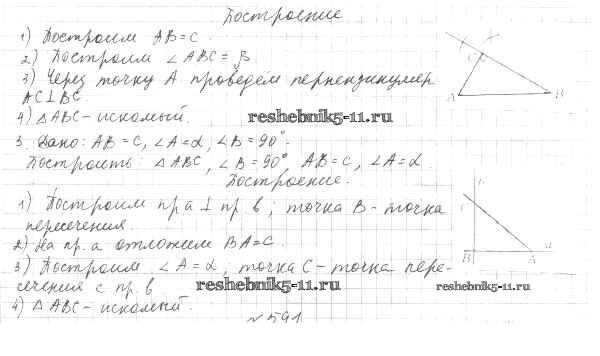 Построение
1) Построим AB = c.
2) Построим ∠ABC = β
3) Через точку A проведем перпендикуляр
AC ⊥ BC.
4) △ABC - искомый.
reshebnik5-11.ru
A B
3. Дано: AB = c, ∠A = α, ∠B = 90°.
Построить: △ABC, ∠B = 90° AB = c, ∠A = α.
Построение.
1) Построим пр a ⊥ пр. в; точка B - точка
пересечения.
2) На пр. a отложим BA = c.
3) Построим ∠A = α; точка C - точка пере-
сечения с пр. в
reshebnik5-11.ru
4) △ABC - искомый.
B A a
№ 591